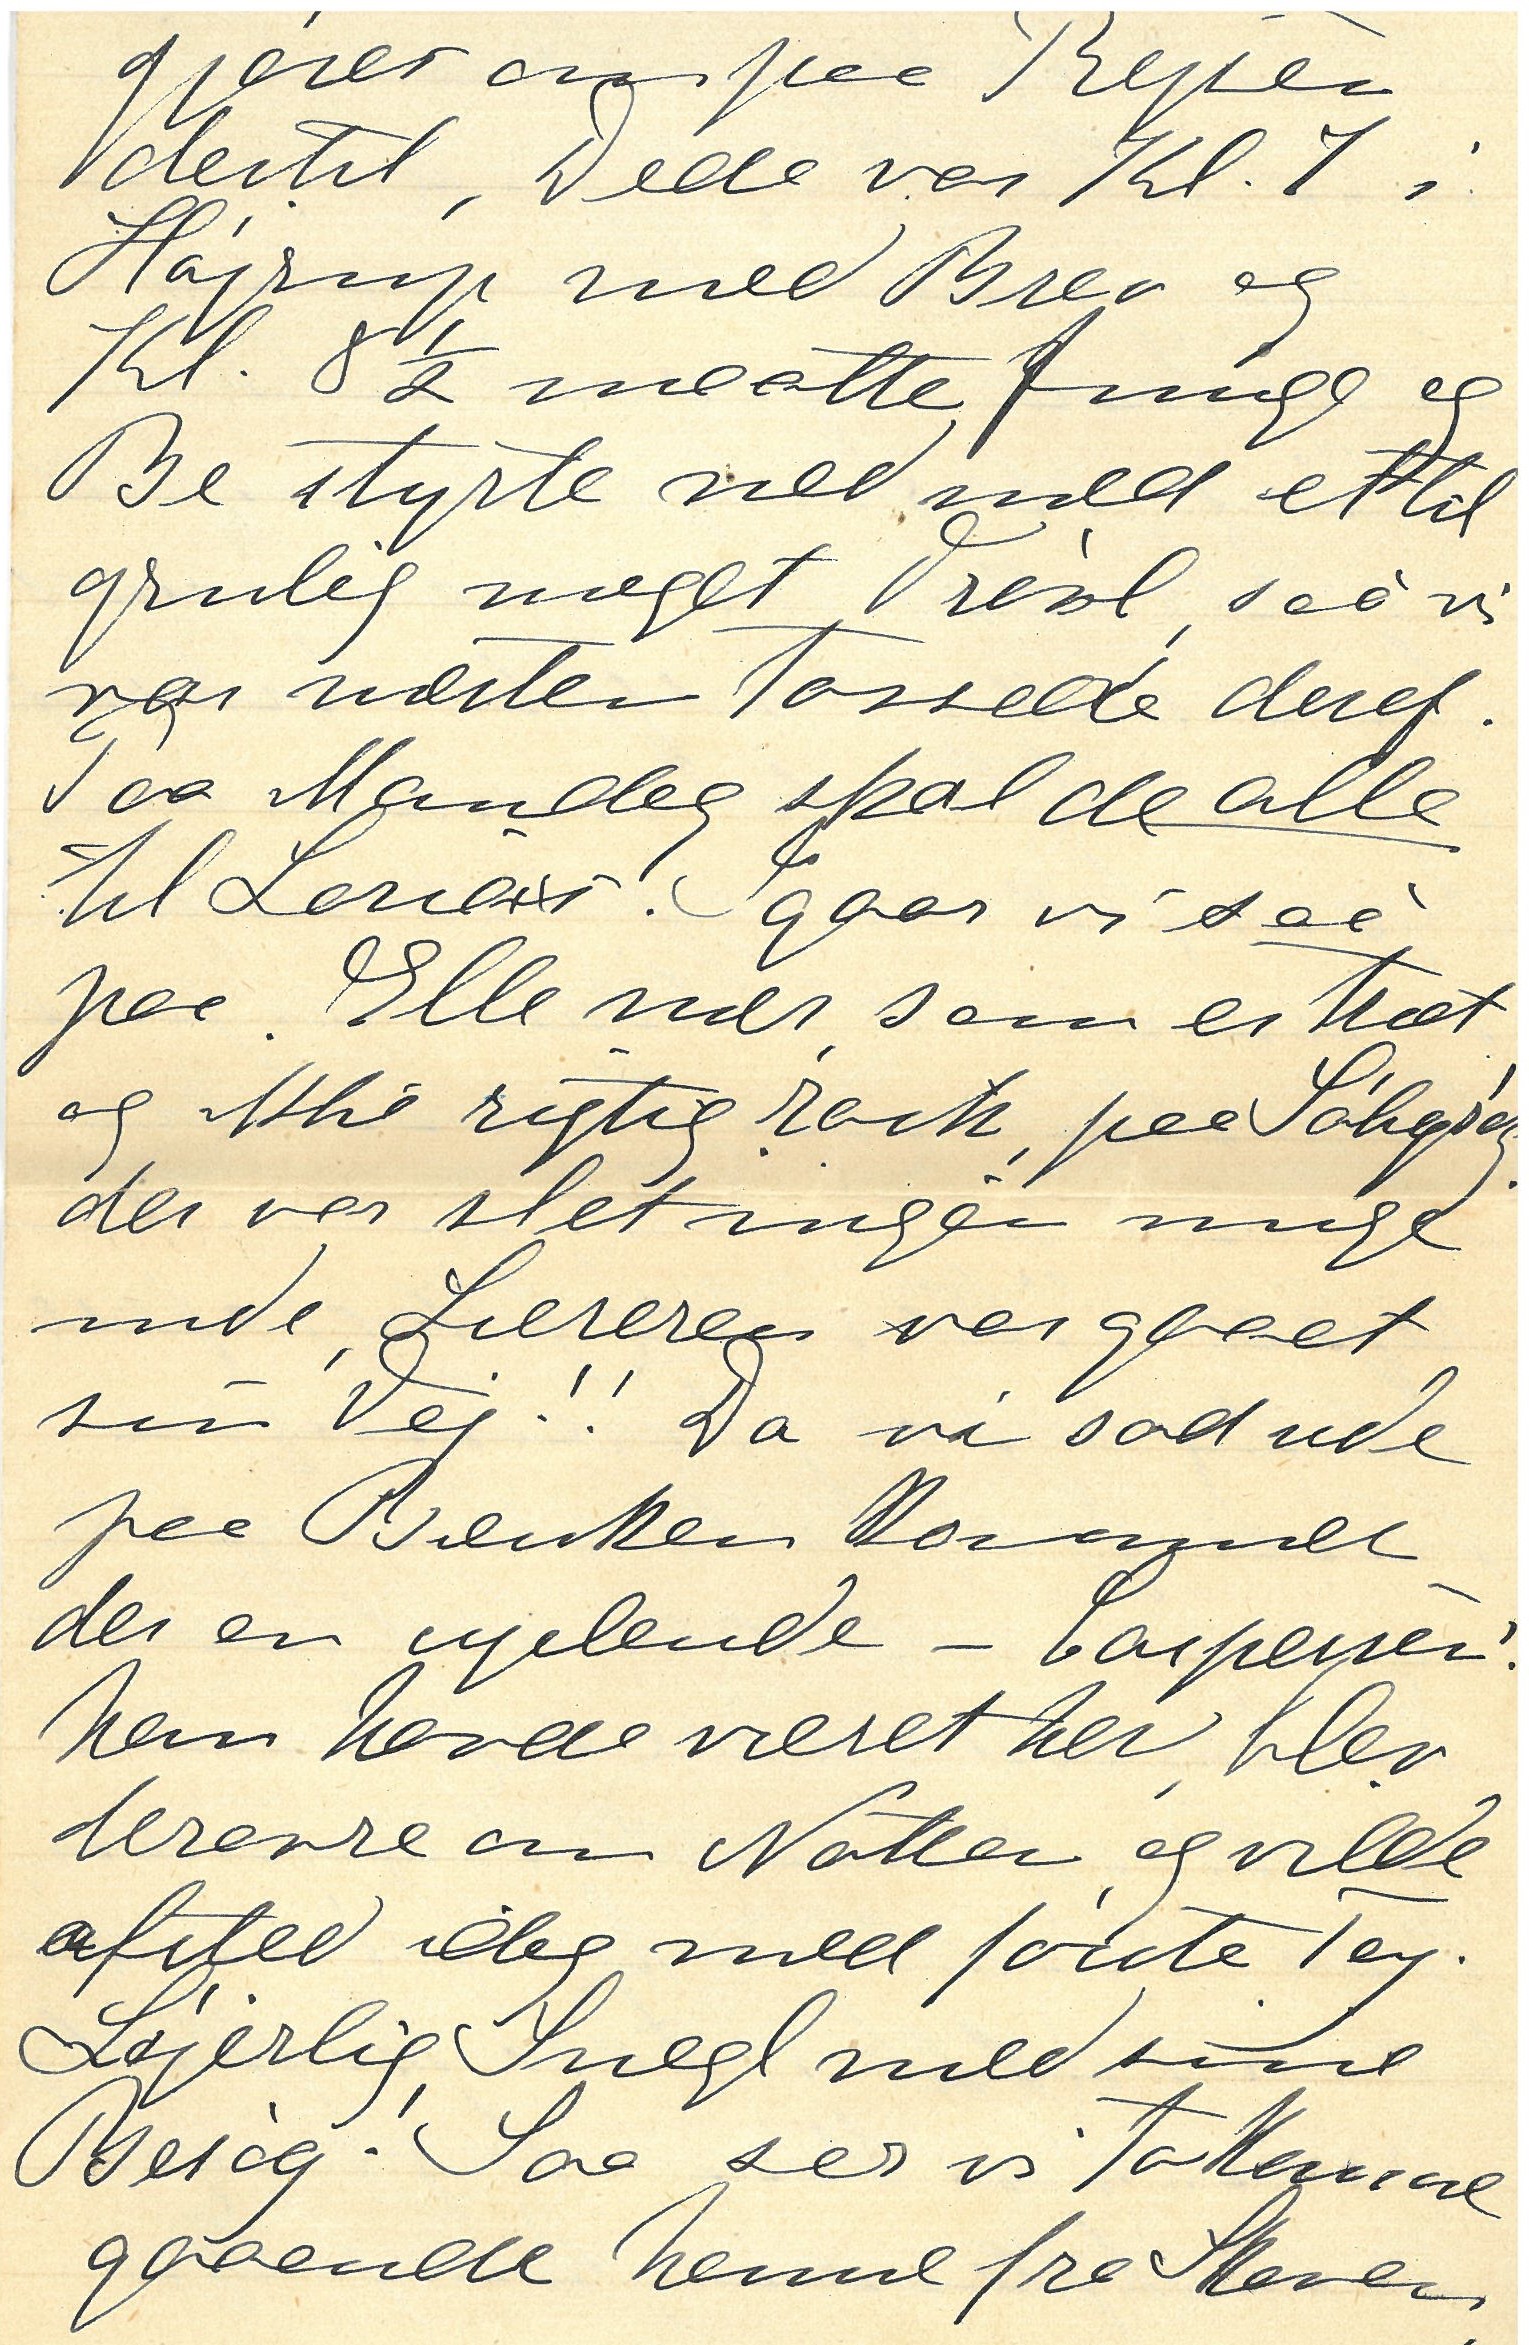 gjøres om paa Rejsen
dertil, Dede var Kl. 7 i
Højrup med Brev og
Kl. 8 1/2 maatte Junge og
Be styrte ned med et til
grulig meget Vrøvl, saa vi
var næsten tossede deraf.
Paa Mandag skal de alle
til Lenes! Igaar vi saa
paa Elle mdr, som er træt
og ikke rigtig rask, paa Søbysøg.
der var slet ingen unge
inde, Læreren var gaaet
sin Vej!! Da vi sad ude
paa Bænken kommer
der en cyclende – Caspersen!
han havde været her, blev
derovre om Natten og vilde
afsted idag med første Tog.
Løjerlig Snegl med sine
Besøg! Saa ser vi to komme
gaaende henne fra Skoven,